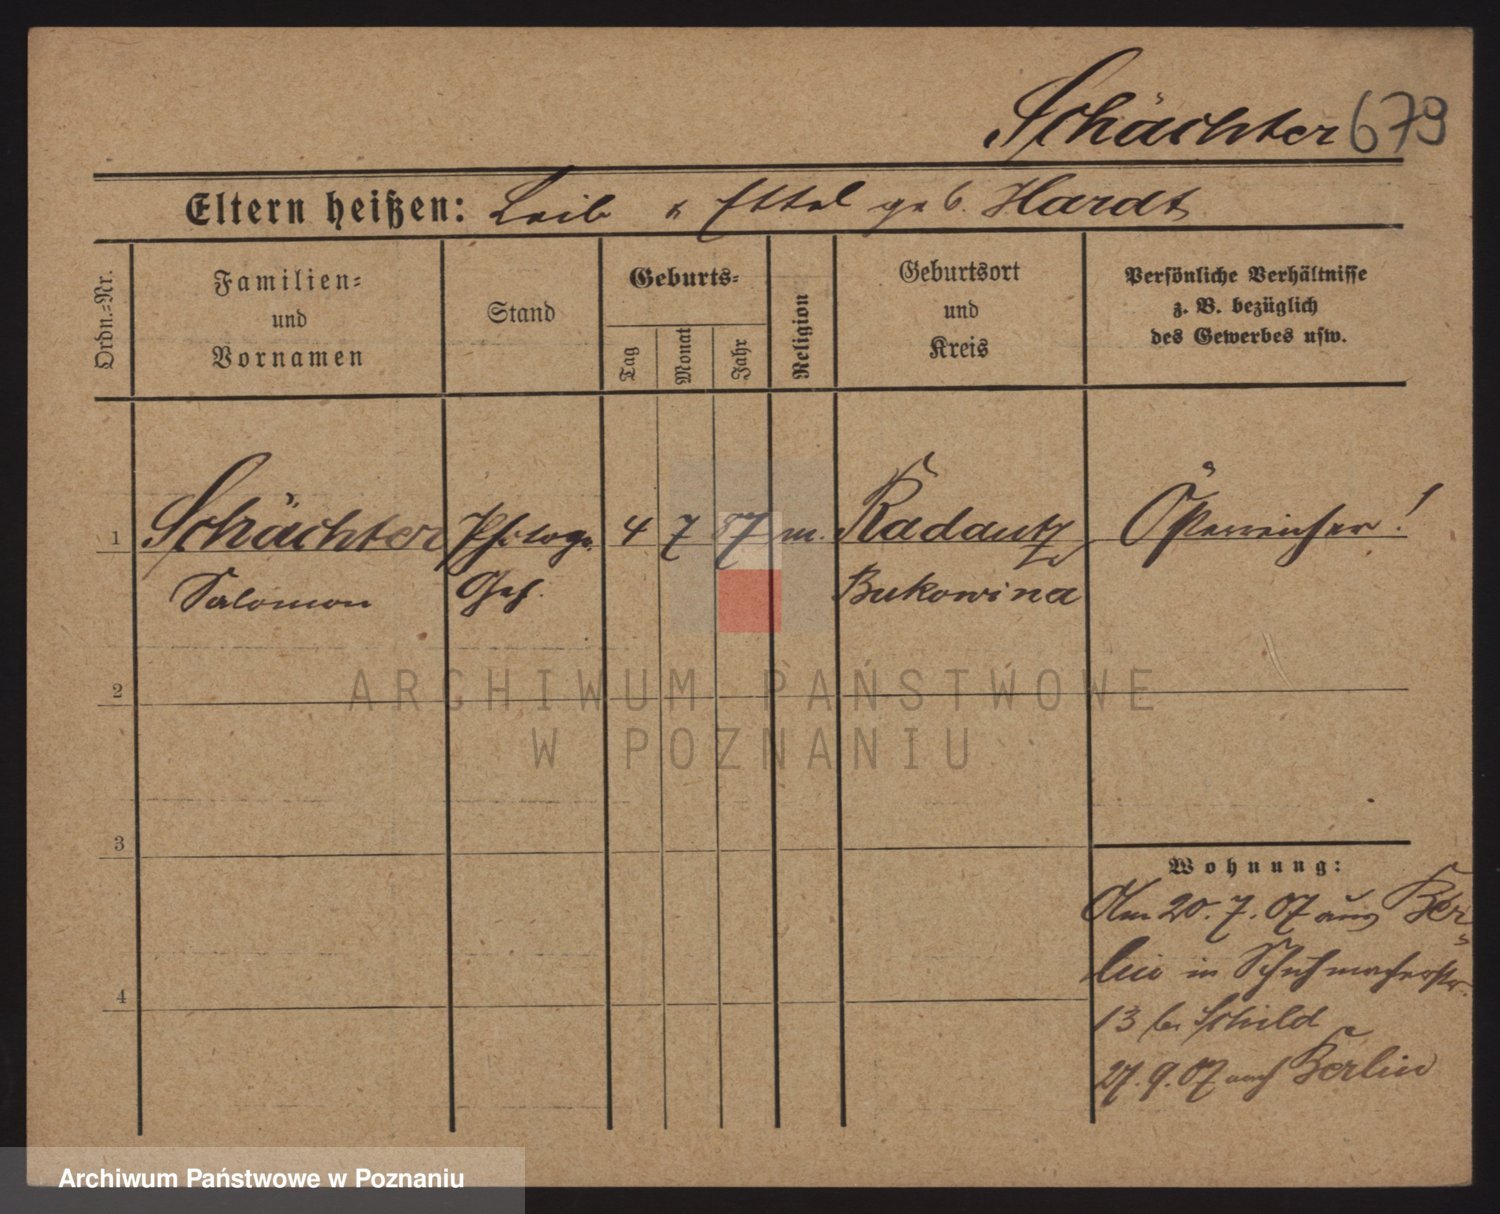 Schächter 679
Eltern heißen: Leib & Ettel geb. Hardt
Ordn.=Nr.
Familien=
und
Vornamen
Stand
Geburts=
Tag
Monat
Jahr
Religion
Geburtsort
und
Kreis
Persönliche Verhältnisse
z. B. bezüglich
des Gewerbes usw.
1 Schächter Photogr. 4 7 87 m. Radautz Österreicher!
Salomon Geh. Bukowina
2
ARCHIWUM PAŃSTWOWE
W POZNANIU
3
Wohnung:
Am 20.7.07 aus Ber=
lin in Schuhmacherstr.
4
13 bei Schild
27.9.07 nach Berlin
Archiwum Państwowe w Poznaniu